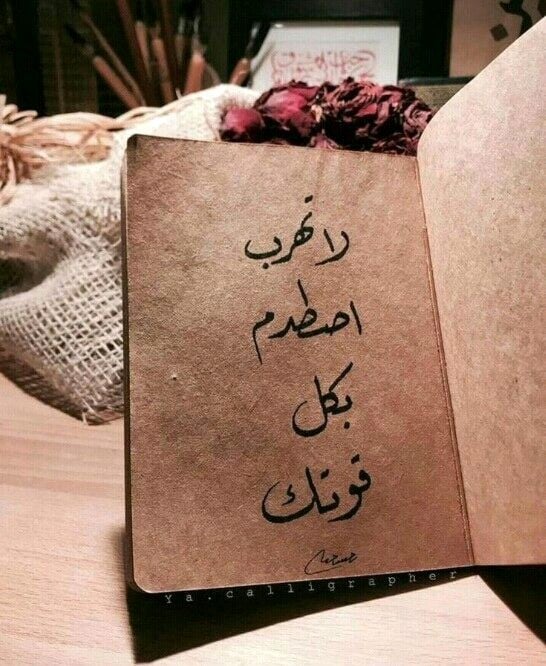 لا تهرب
اصطدم
بكل
قوتك
Ya.calligrapher